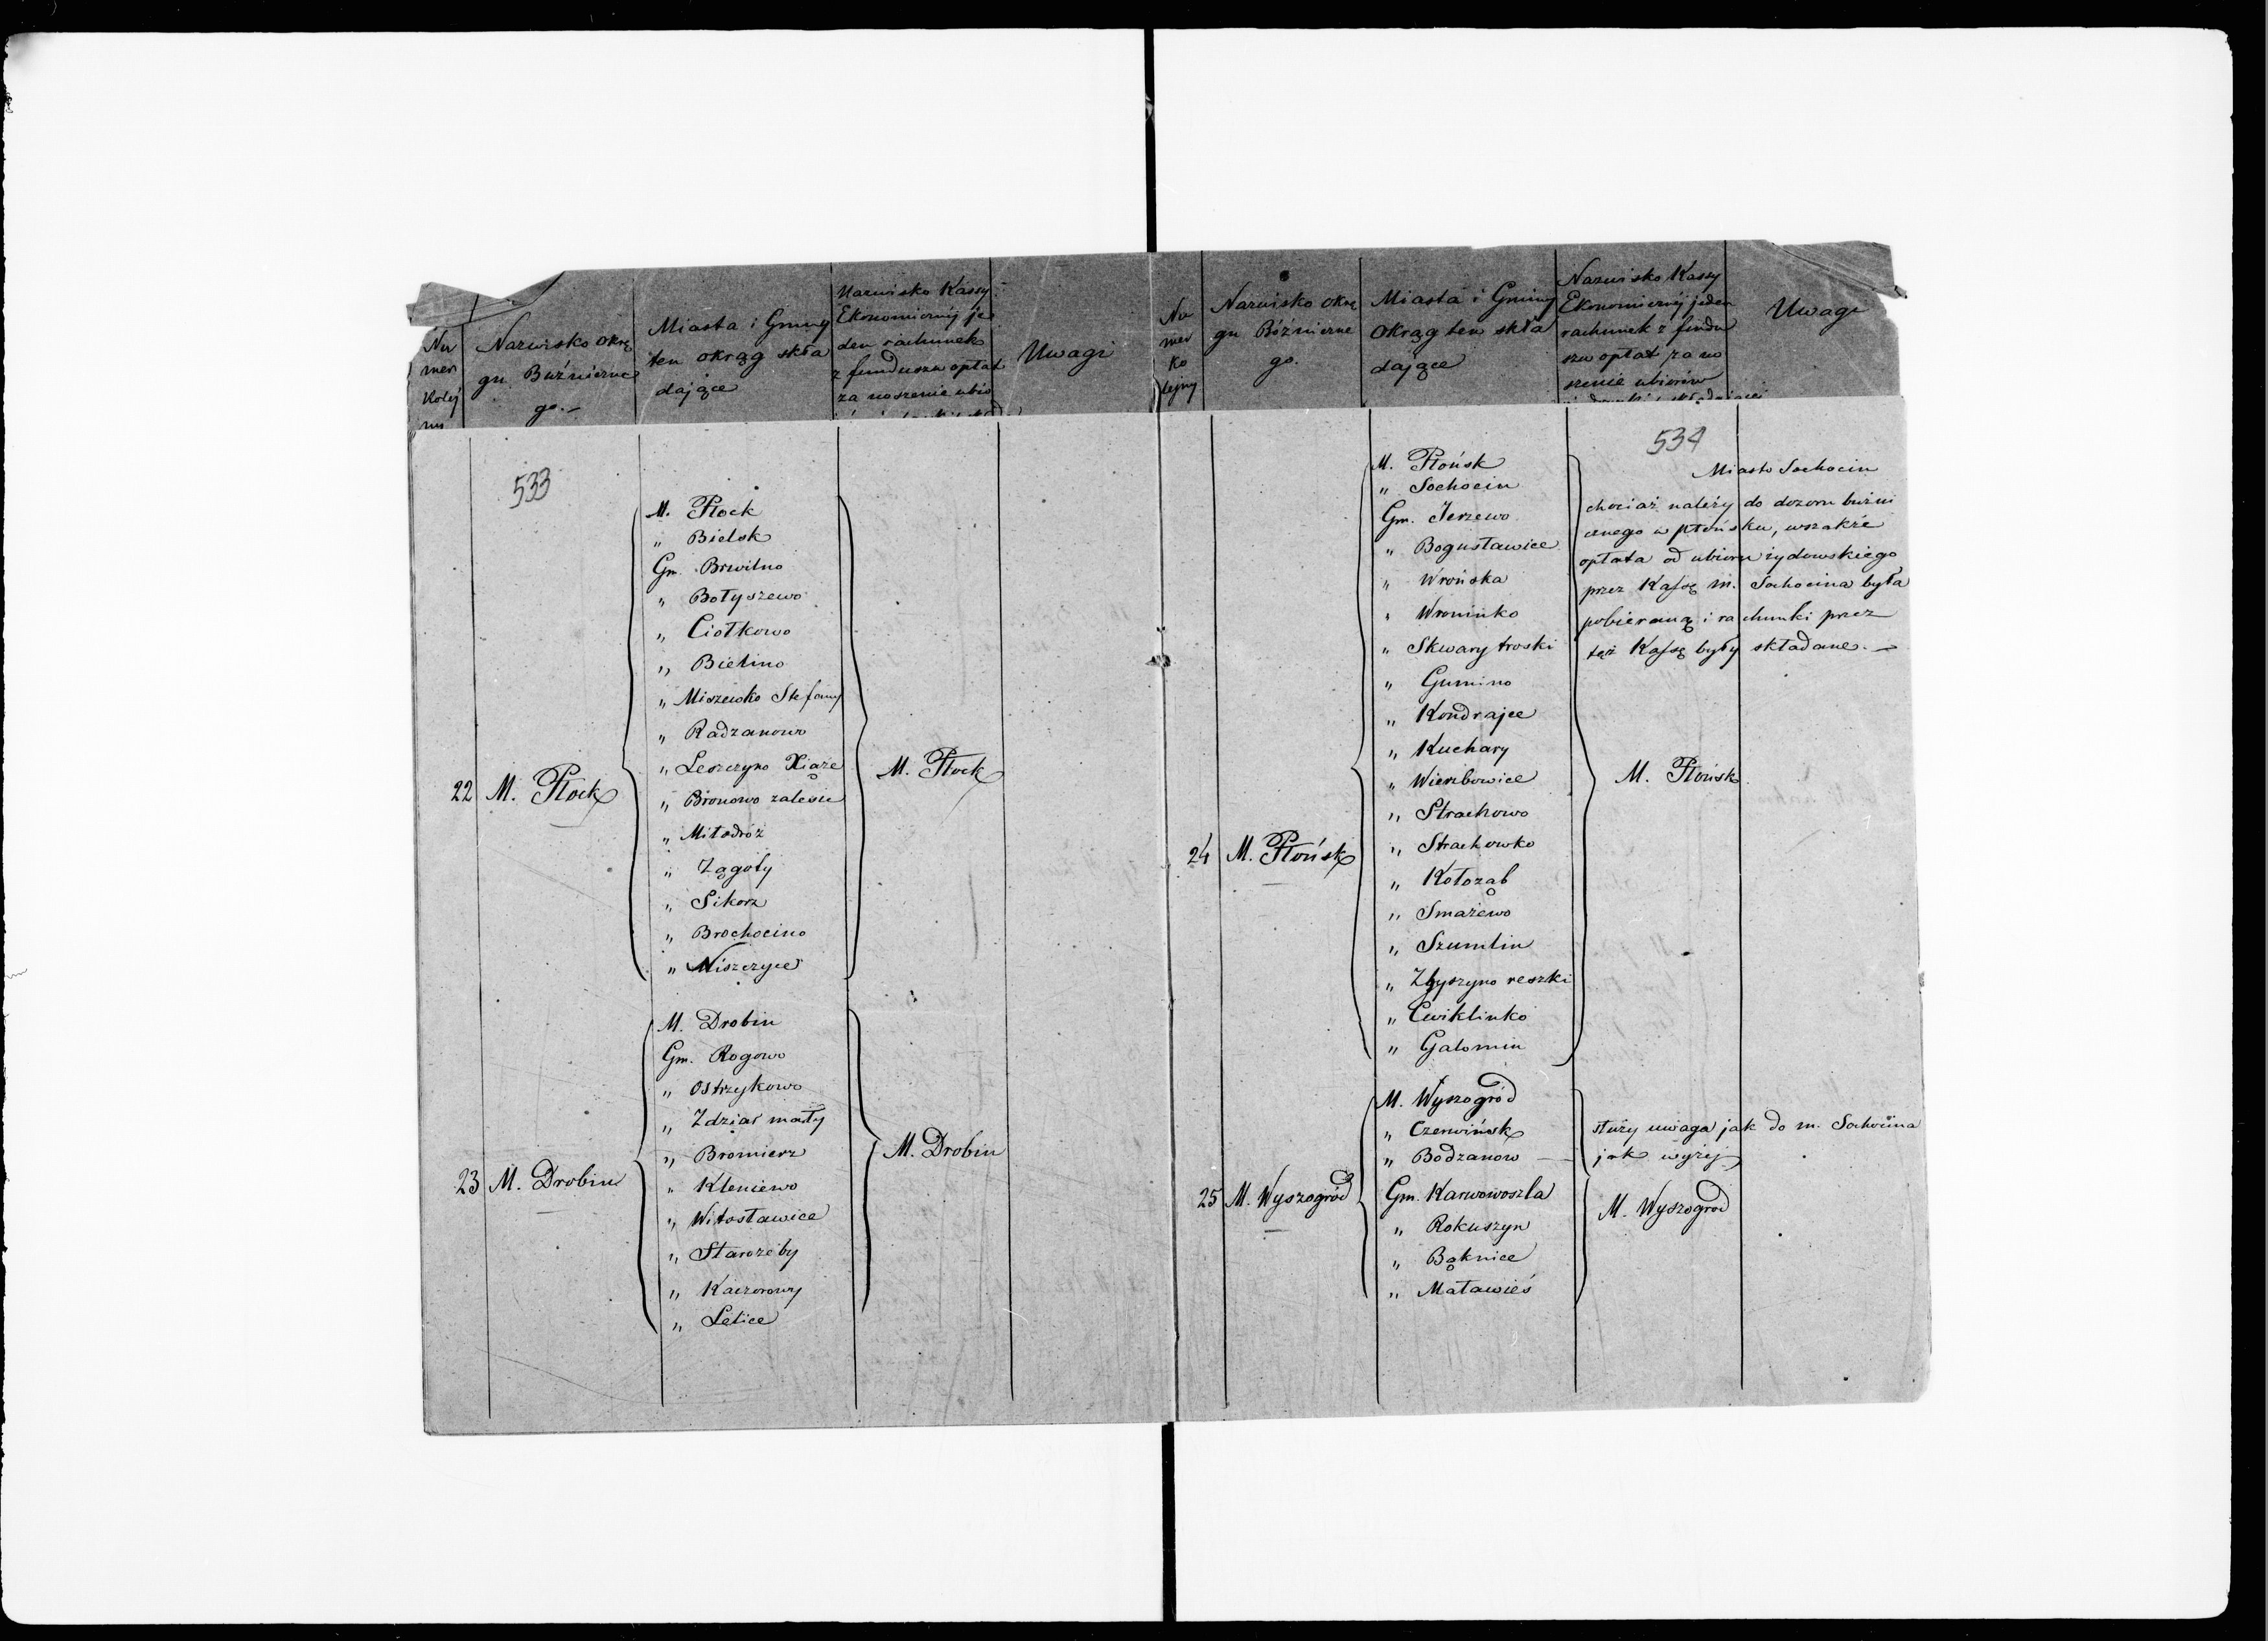 Nu
mer
Kolej
ny
Nazwisko Okrę
gu Bużniczne
go.-
Miasta i Gminy
ten okrąg skła
dające
Nazwisko Kassy
Ekonomicznej je
den rachunek
z funduszu opłat
za noszenie ubio
Uwagi
533
22 M. Płock
M. Płock
" Bielsk
Gm. Brwilno
" Bołyszewo
" Ciołkowo
" Bielino
" Miszewko Stefany
" Radzanowo
" Leszczyno Xiąże
" Bronowo zalesie
" Miłodróż
" Zągoty
" Sikorz
" Brochocino
" Niszczyce
M. Płock
23 M. Drobin
M. Drobin
Gm. Rogowo
" Ostrzykowo
" Zdziar mały
" Bromierz
" Kleniewo
" Witosławice
" Staroźeby
" Kaczorowy
" Letice
M. Drobin
Nu
mer
Ko
lejny
Nazwisko Okrę
gu Bóżniczne
go.
Miasta i Gminy
Okrąg ten skła
dające
Nazwisko Kassy
Ekonomicznej jeden
rachunek z fundu
szu opłat za no
szenie ubiorów
Uwagi
534
24 M. Płońsk
M. Płońsk
" Sochocin
Gm. Jerzewo
" Bogusławice
" Wrońska
" Wroninko
" Skwary troski
" Gumino
" Kondrajce
" Kuchary
" Wierzbowice
" Strachowo
" Strachowko
" Kołoząb
" Smażewo
" Szumlin
" Zbyszyno reszki
" Cwiklinko
" Galomin
M. Płońsk
Miasto Sochocin
chociaż należy do dozoru bużni
cznego w Płońsku, wszakże
opłata od ubioru żydowskiego
przez Kassę m. Sochocina była
pobieraną i rachunki przez
też Kassę były składane. -
25 M. Wyszogród
M. Wyszogród
" Czerwińsk
" Bodzanow -
Gm. Karwowoszla
" Rokuszyn
" Bąknice
" Maławieś
służy uwaga jak do m. Sochocina
jak wyżej
M. Wyszogrod